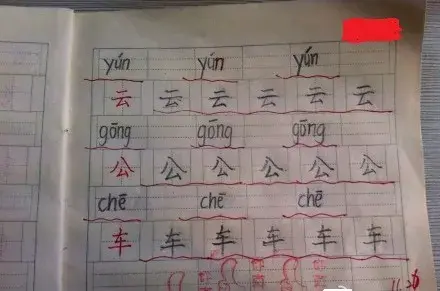 yún yún yún
云 云 云 云 云 云
gōng gōng gōng
公 公 公 公 公 公
chē chē chē
车 车 车 车 车 车